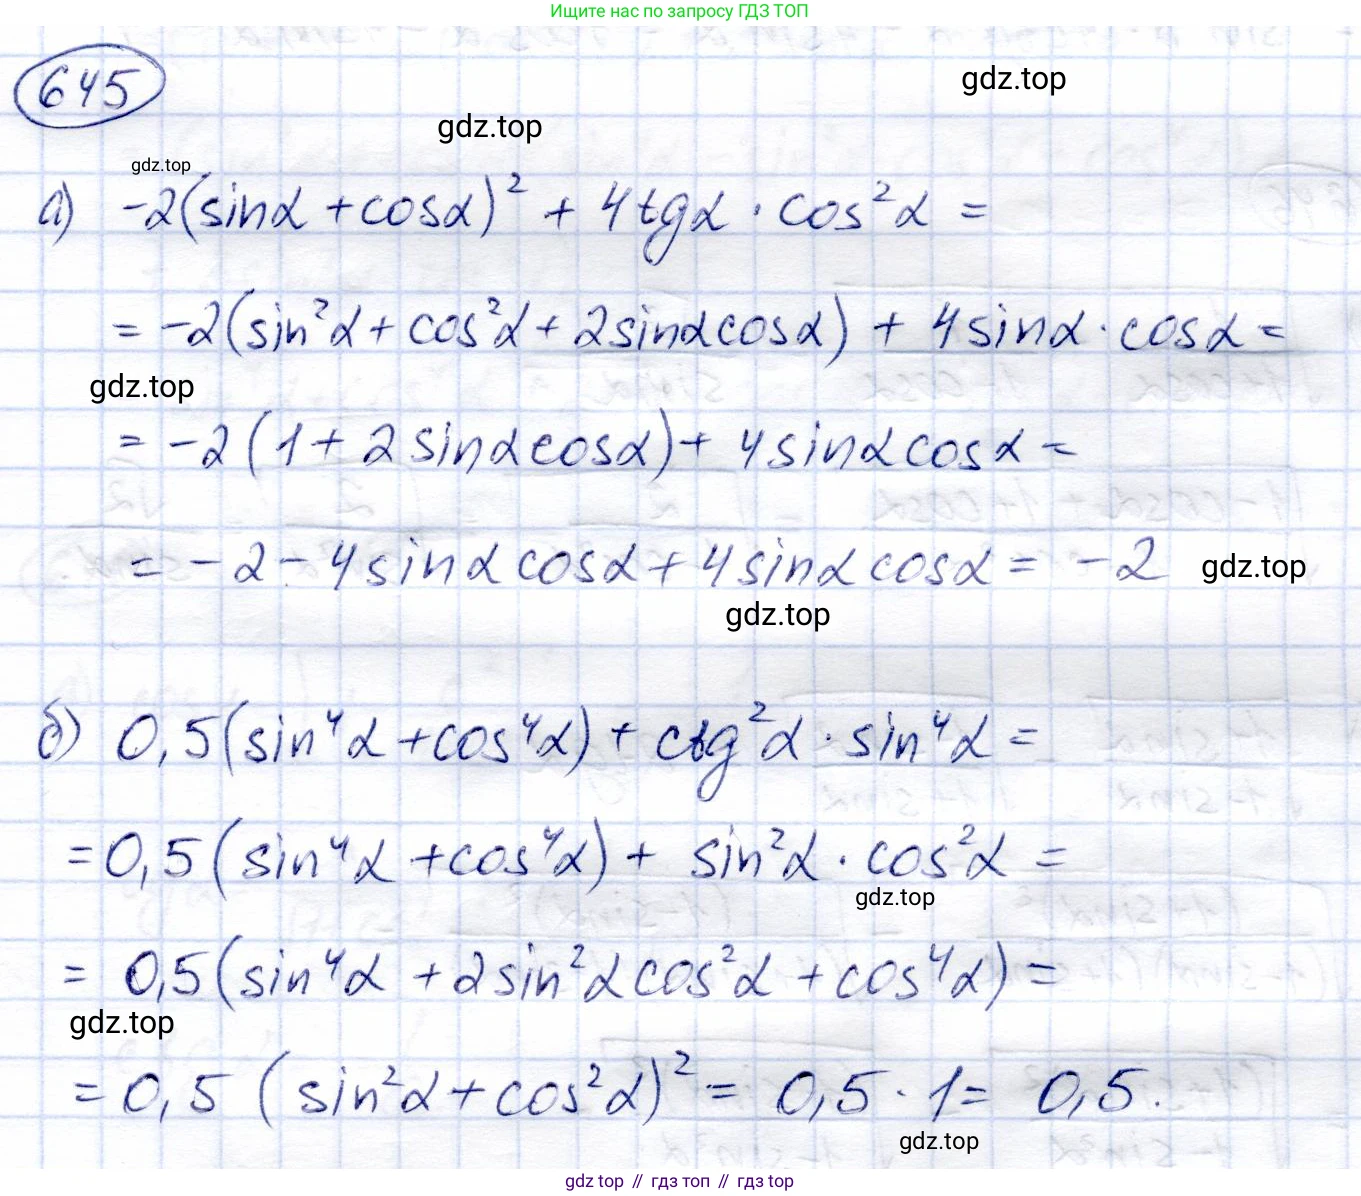 Ищите нас по запросу ГДЗ ТОП
645
gdz.top
gdz.top
gdz.top
а) -2(sinα + cosα)² + 4tgα · cos²α =
= -2(sin²α + cos²α + 2sinαcosα) + 4sinα · cosα =
gdz.top
= -2(1 + 2sinαcosα) + 4sinαcosα =
= -2 - 4sinαcosα + 4sinαcosα = -2
gdz.top
gdz.top
б) 0,5(sin⁴α + cos⁴α) + ctg²α · sin⁴α =
= 0,5(sin⁴α + cos⁴α) + sin²α · cos²α =
gdz.top
= 0,5(sin⁴α + 2sin²αcos²α + cos⁴α) =
gdz.top
= 0,5 (sin²α + cos²α)² = 0,5 · 1 = 0,5.
gdz.top
gdz top // гдз топ // гдз top